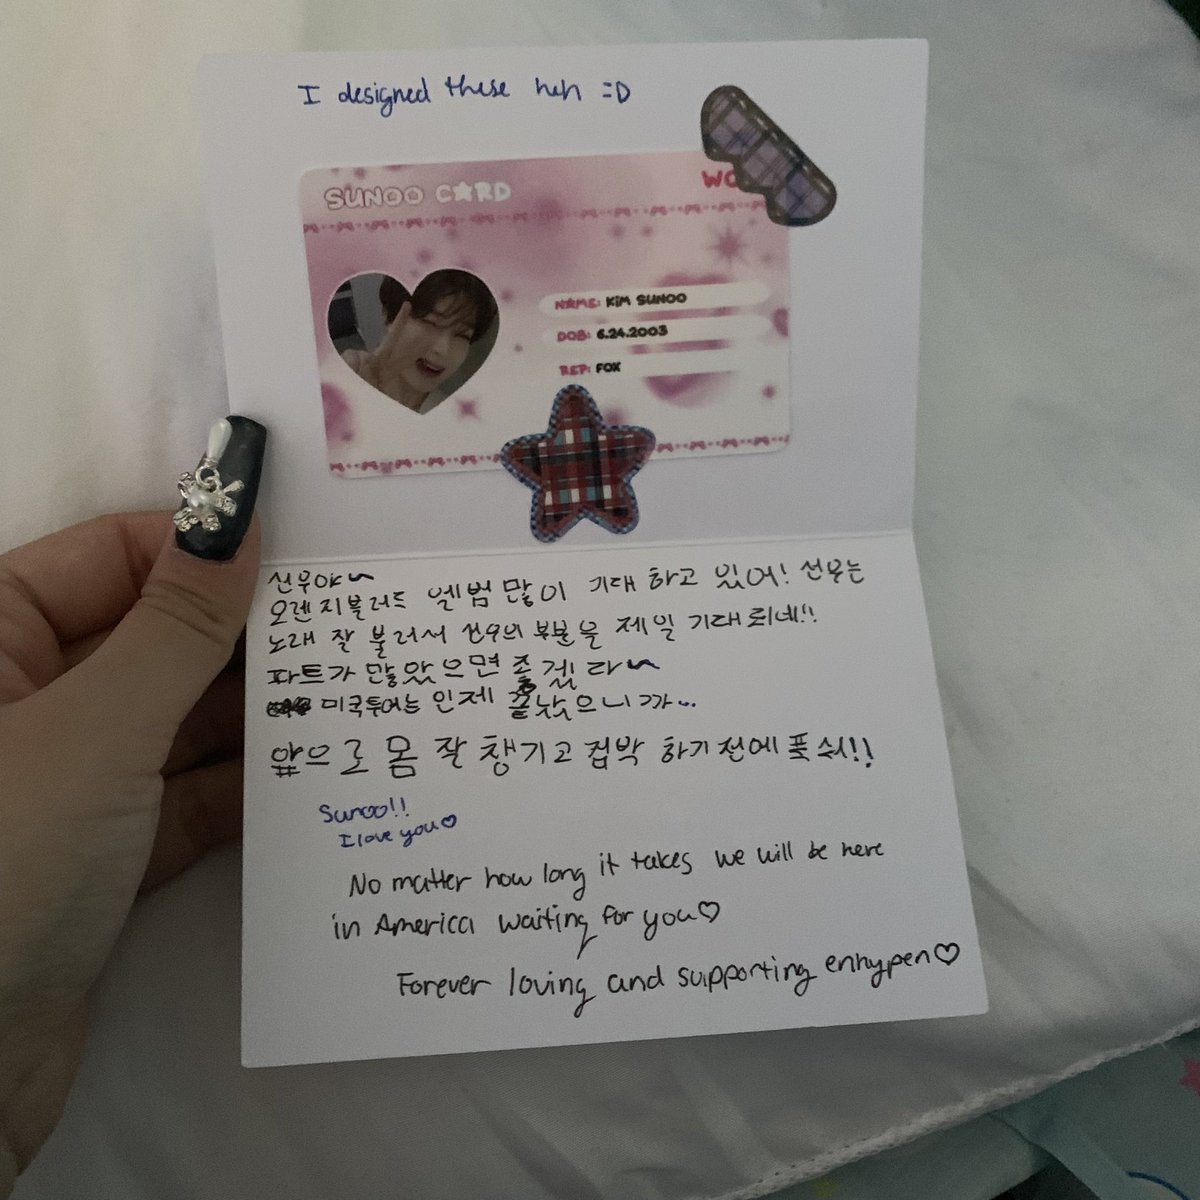 I designed these heh =D
SUNOO CARD
NAME: KIM SUNOO
DOB: 6.24.2003
REP: FOX
선우야~
오렌지블러드 엘범 많이 기대 하고 있어! 선우는
노래 잘 불러서 선우의 부분을 제일 기대 되네!!
파트가 많았으면 좋겠라~
미국투어는 인제 끝났으니까..
앞으로 몸 잘 챙기고 컴박 하기전에 푹 쉬!!
Sunoo!!
I love you♡
No matter how long it takes we will be here
in America waiting for you♡
Forever loving and supporting enhypen♡